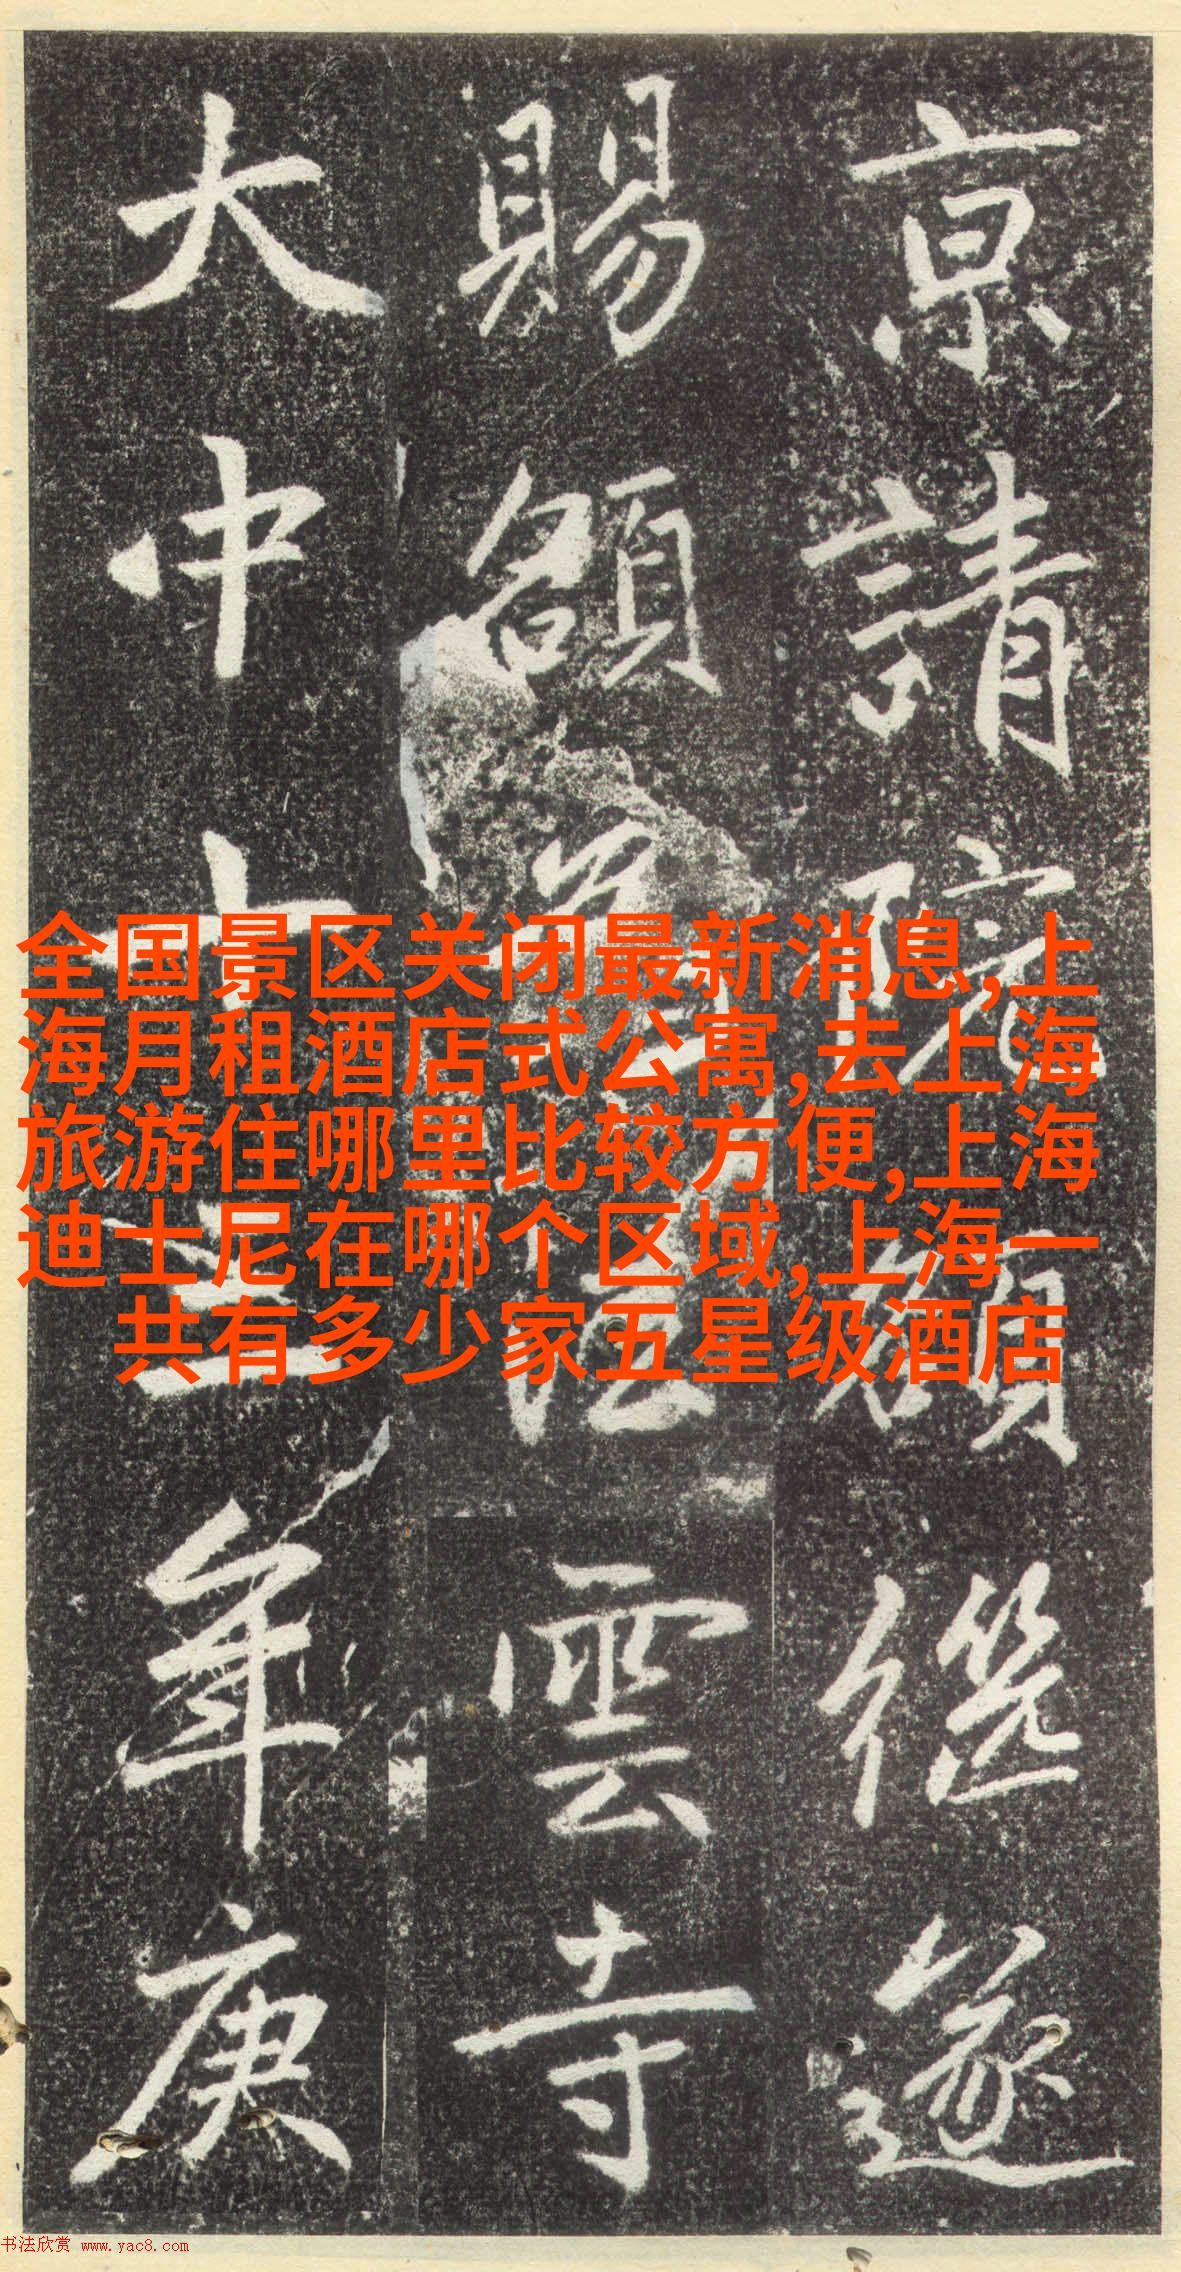 京請院額継遂
賜額雲寺
大中年庚
全国景区关闭最新消息,上
海月租酒店式公寓,去上海
旅游住哪里比较方便,上海
迪士尼在哪个区域,上海一
共有多少家五星级酒店
书法欣赏 www.yac8.com